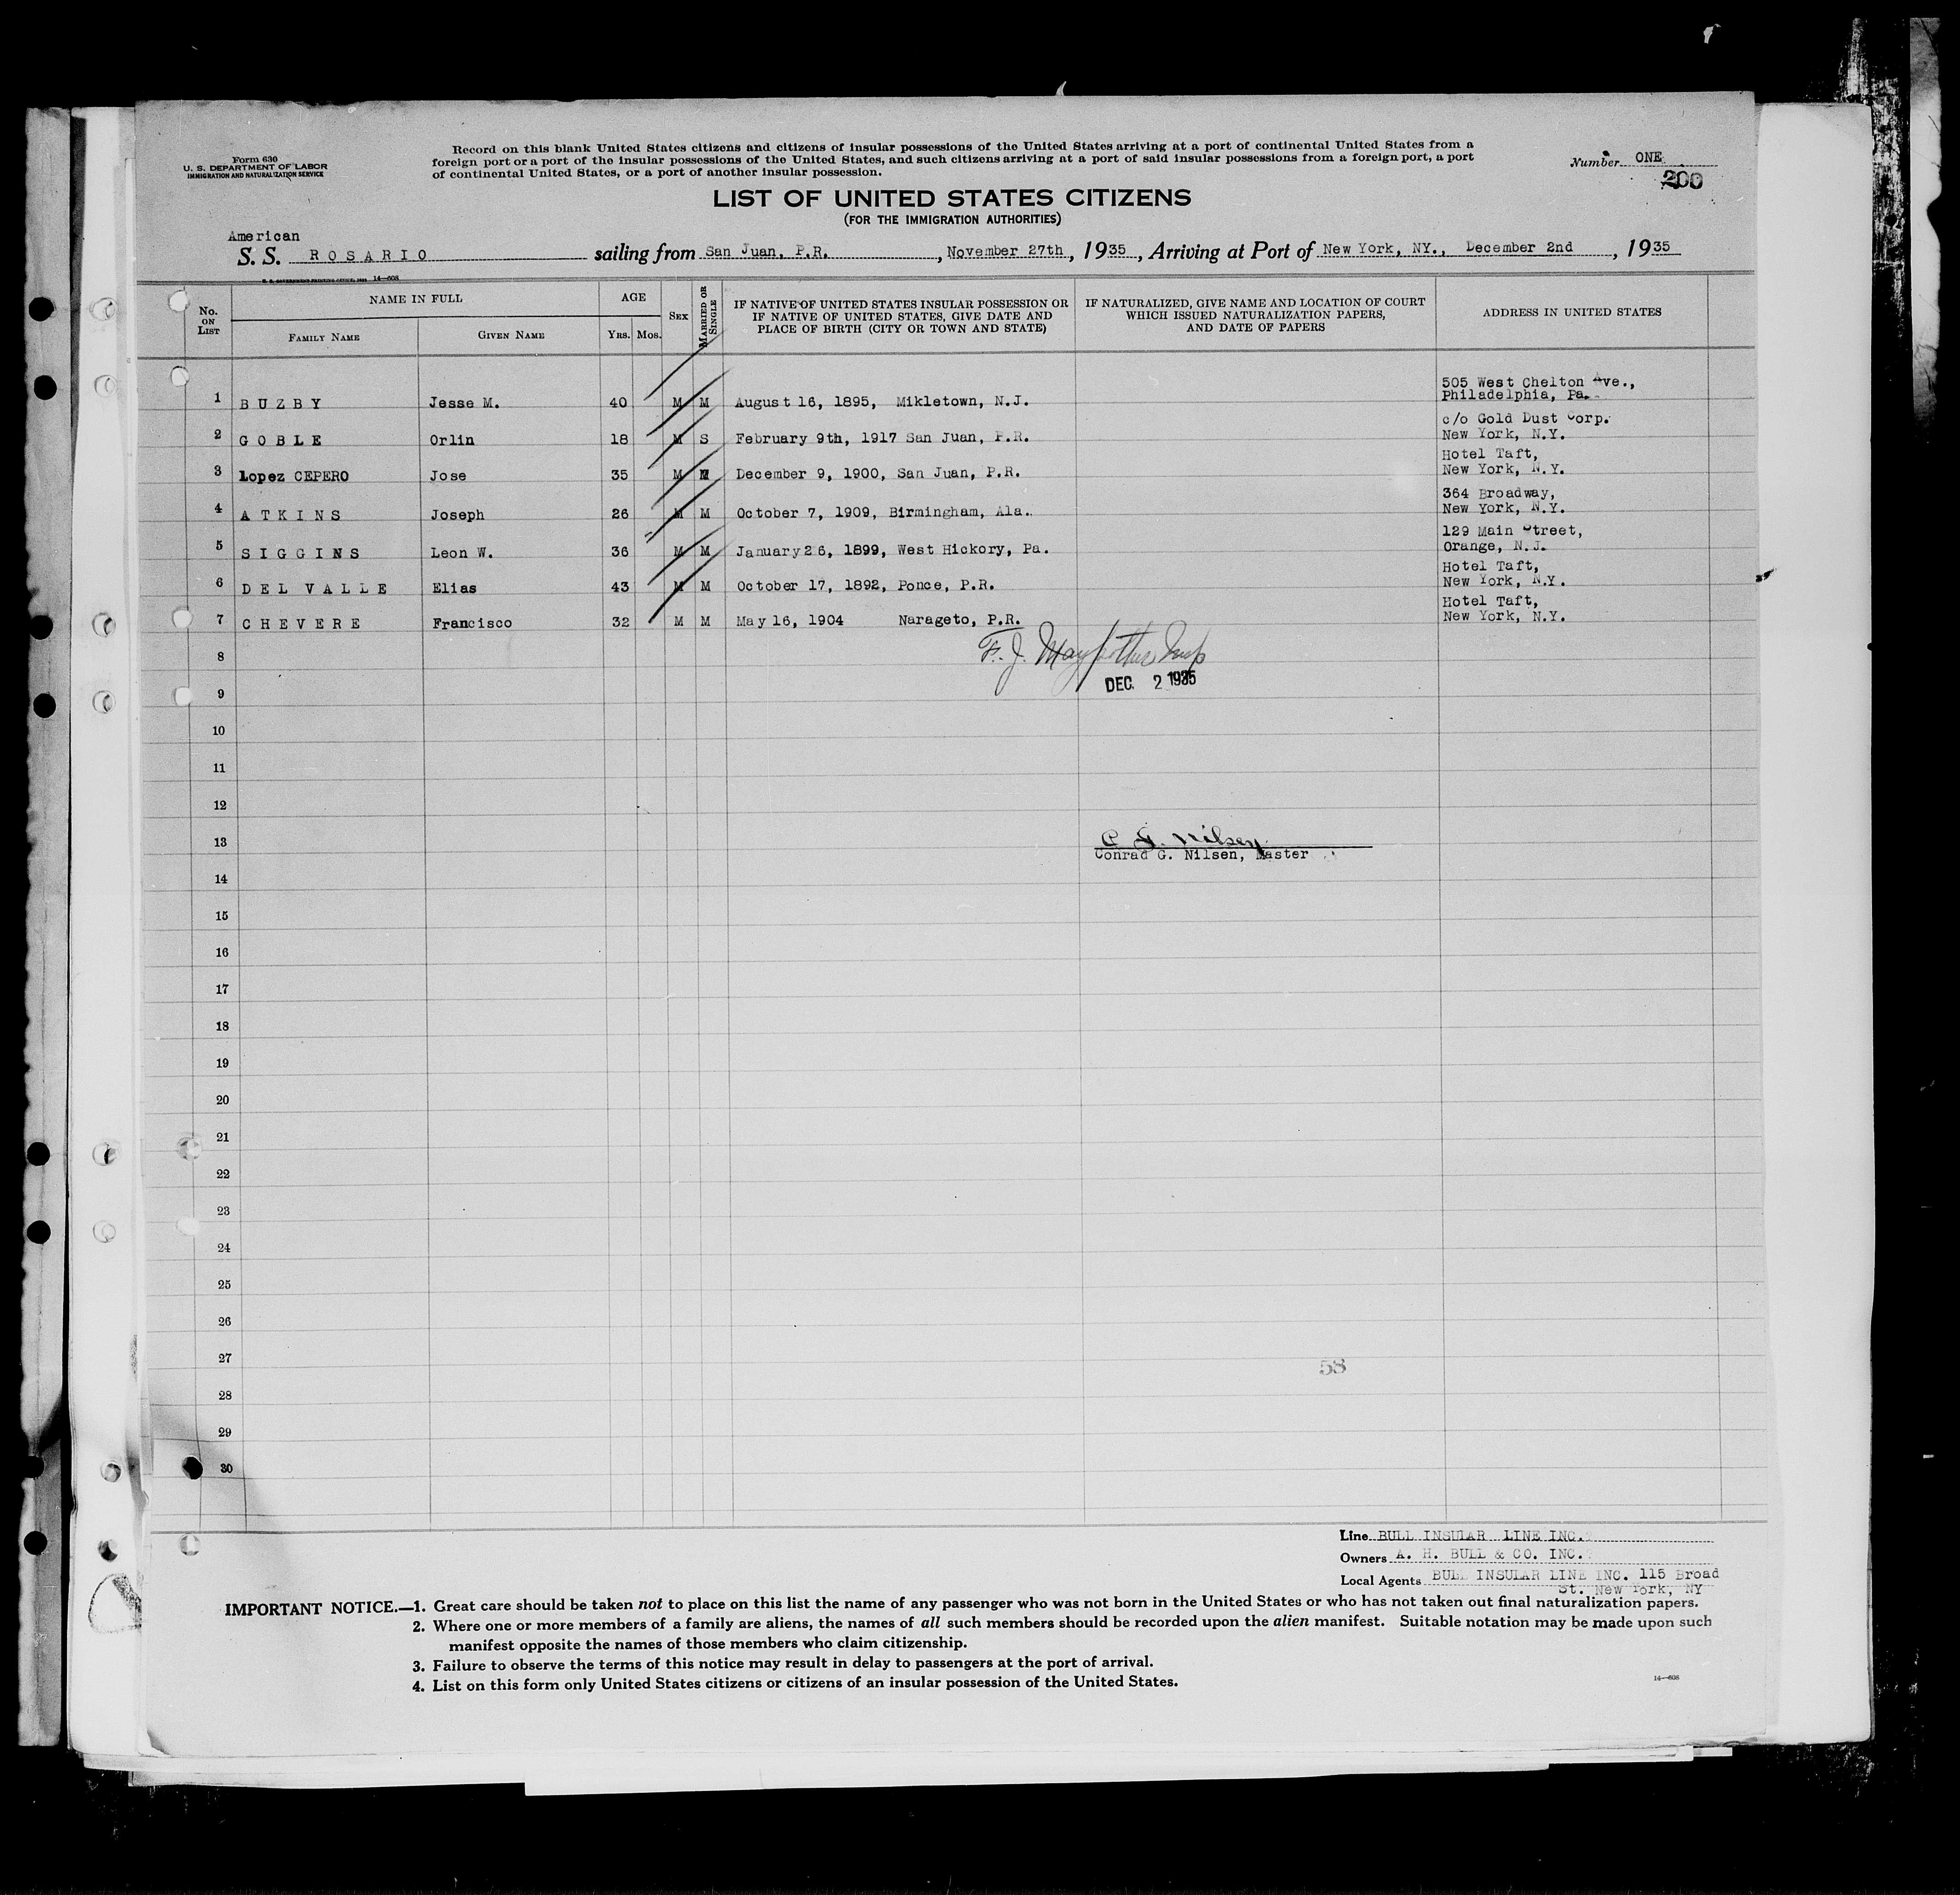 Form 630
U. S. DEPARTMENT OF LABOR
IMMIGRATION AND NATURALIZATION SERVICE
Record on this blank United States citizens and citizens of insular possessions of the United States arriving at a port of continental United States from a
foreign port or a port of the insular possessions of the United States, and such citizens arriving at a port of said insular possessions from a foreign port, a port
of continental United States, or a port of another insular possession.
Number ONE
200
LIST OF UNITED STATES CITIZENS
(FOR THE IMMIGRATION AUTHORITIES)
American
S. S. ROSARIO sailing from San Juan, P.R. , November 27th , 1935 , Arriving at Port of New York, NY., December 2nd , 1935
U. S. GOVERNMENT PRINTING OFFICE 14—608
No. ON LIST NAME IN FULL AGE SEX MARRIED OR SINGLE IF NATIVE OF UNITED STATES INSULAR POSSESSION OR IF NATIVE OF UNITED STATES, GIVE DATE AND PLACE OF BIRTH (CITY OR TOWN AND STATE) IF NATURALIZED, GIVE NAME AND LOCATION OF COURT WHICH ISSUED NATURALIZATION PAPERS, AND DATE OF PAPERS ADDRESS IN UNITED STATES
FAMILY NAME GIVEN NAME YRS. MOS.
505 West Chelton Ave.,
1 BUZBY Jesse M. 40 M M August 16, 1895, Mikletown, N.J. Philadelphia, Pa.
c/o Gold Dust Corp.
2 GOBLE Orlin 18 M S February 9th, 1917 San Juan, P.R. New York, N.Y.
Hotel Taft,
3 Lopez CEPERO Jose 35 M M December 9, 1900, San Juan, P.R. New York, N.Y.
364 Broadway,
4 ATKINS Joseph 26 M M October 7, 1909, Birmingham, Ala. New York, N.Y.
129 Main Street,
5 SIGGINS Leon W. 36 M M January 26, 1899, West Hickory, Pa. Orange, N.J.
Hotel Taft,
6 DEL VALLE Elias 43 M M October 17, 1892, Ponce, P.R. New York, N.Y.
Hotel Taft,
7 CHEVERE Francisco 32 M M May 16, 1904 Narageto, P.R. New York, N.Y.
8 F. J.
9 DEC. 2 1935
10
11
12
13 C G. Nilsen
Conrad G. Nilsen, Master
14
15
16
17
18
19
20
21
22
23
24
25
26
27 58
28
29
30
Line BULL INSULAR LINE INC.
Owners A. H. BULL & CO. INC.
Local Agents BULL INSULAR LINE INC. 115 Broad
St. New York, NY
IMPORTANT NOTICE.—1. Great care should be taken not to place on this list the name of any passenger who was not born in the United States or who has not taken out final naturalization papers.
2. Where one or more members of a family are aliens, the names of all such members should be recorded upon the alien manifest. Suitable notation may be made upon such
manifest opposite the names of those members who claim citizenship.
3. Failure to observe the terms of this notice may result in delay to passengers at the port of arrival.
4. List on this form only United States citizens or citizens of an insular possession of the United States.
14—608